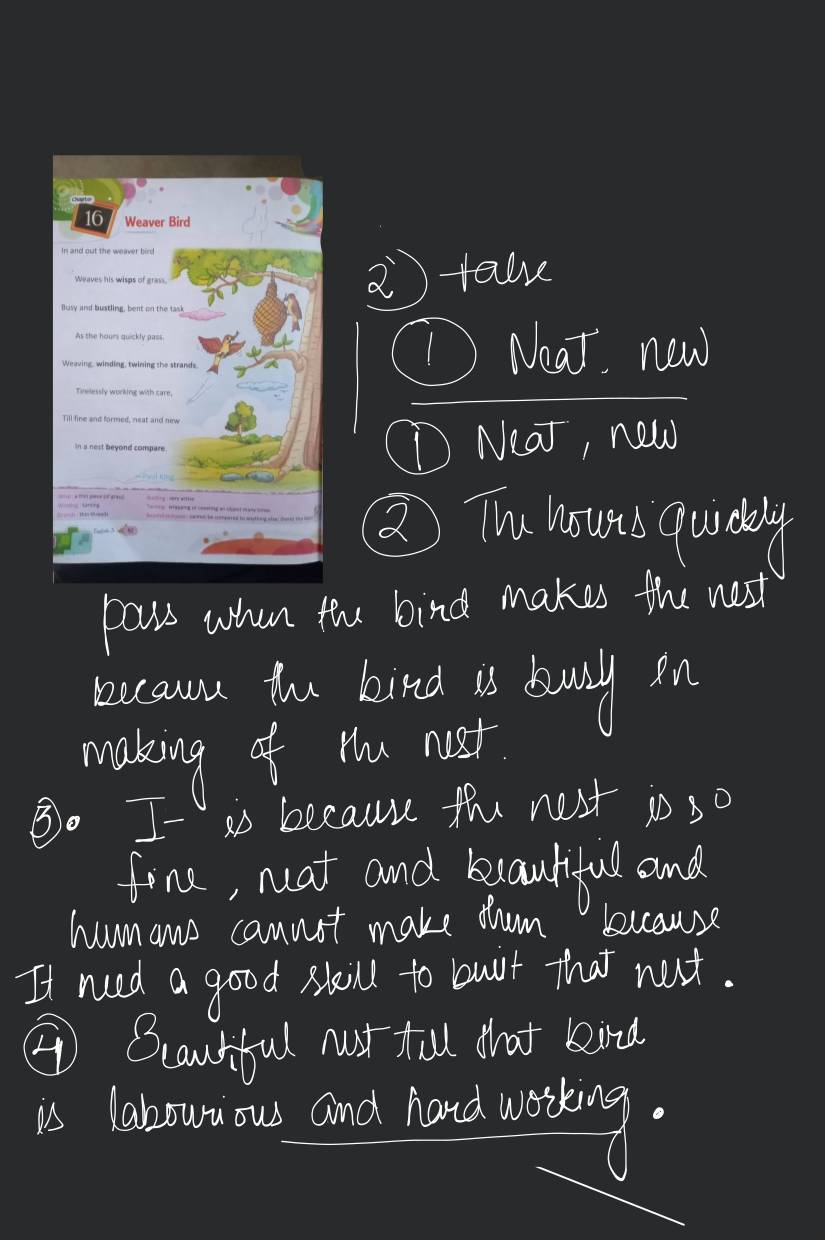 Chapter
16
Weaver Bird
In and out the weaver bird
Weaves his wisps of grass,
Busy and bustling, bent on the task
As the hours quickly pass.
Weaving, winding, twining the strands,
Tirelessly working with care,
Till fine and formed, neat and new
In a nest beyond compare.
Wisp : a thin piece (of grass)
Bustling : very active
Winding : turning
Twining : wrapping or covering an object many times
Strands : thin threads
2) false
1 Neat. new
1 Neat, new
2 The hours quickly
pass when the bird makes the nest
because the bird is busy in
making of the nest.
3. It is because the nest is so
fine, neat and beautiful and
humans cannot make them because
It need a good skill to built that nest.
4 Beautiful nest tell that bird
is labourious and hard working.